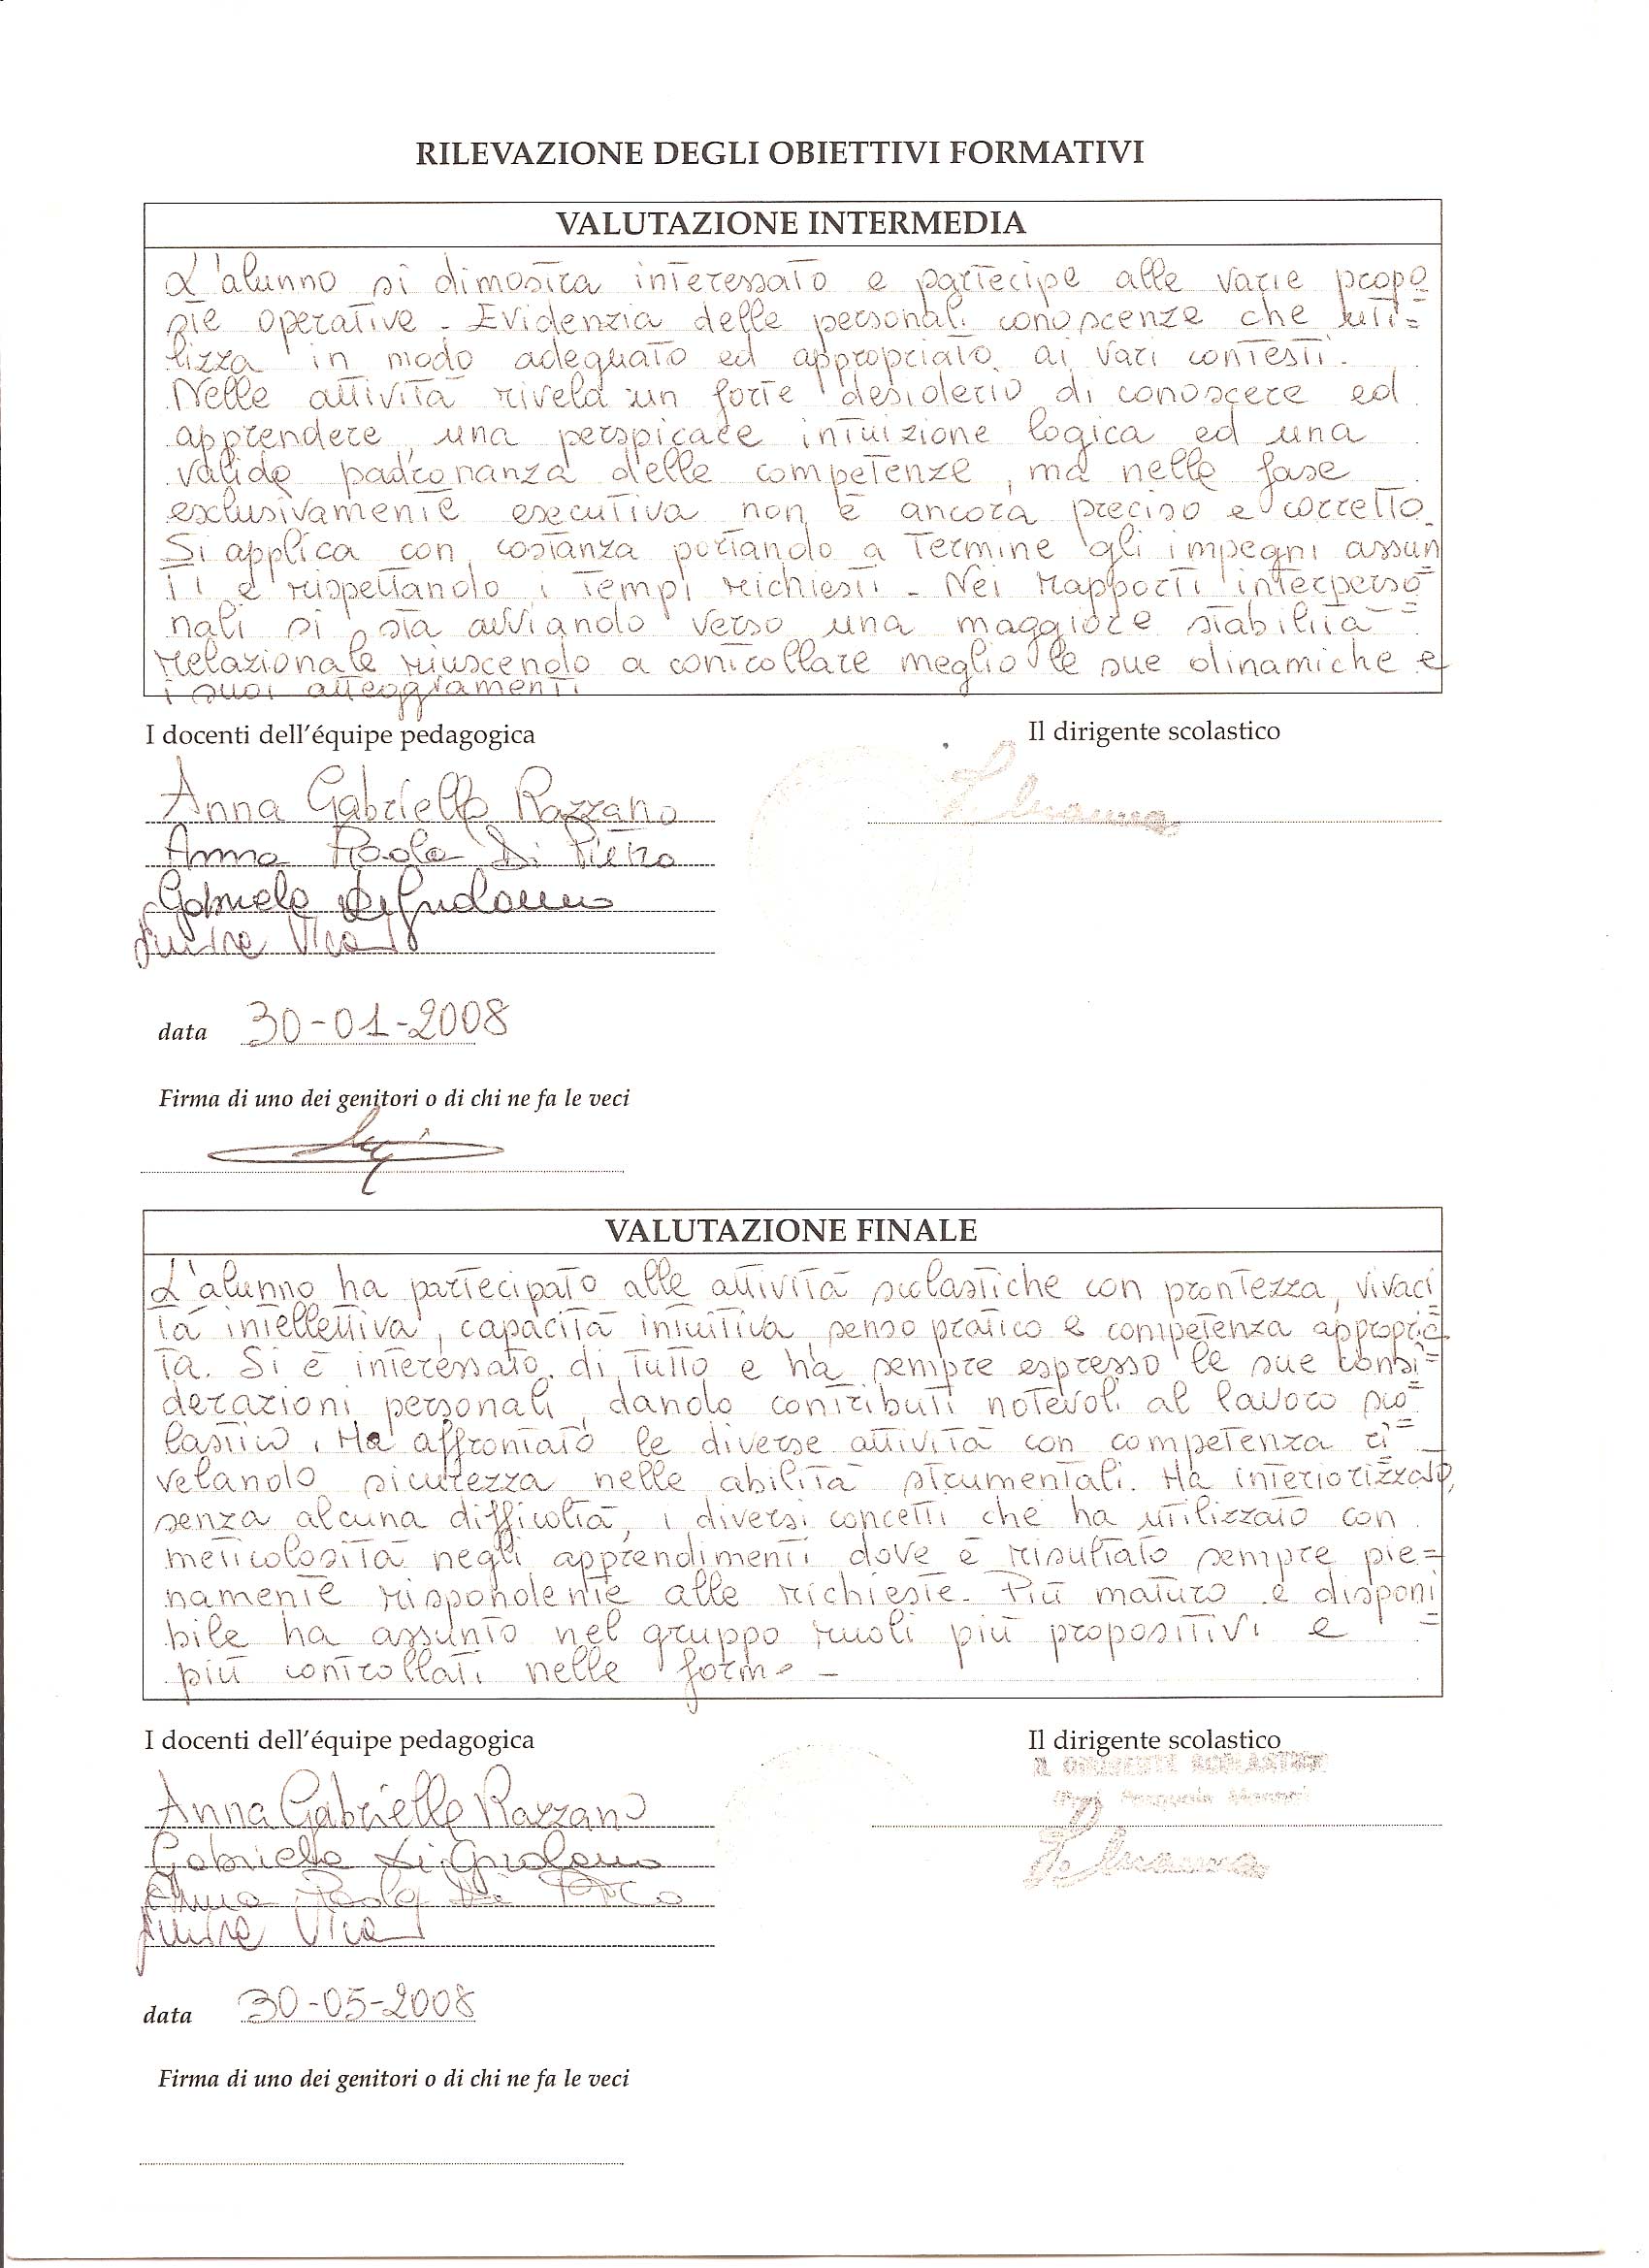 RILEVAZIONE DEGLI OBIETTIVI FORMATIVI
VALUTAZIONE INTERMEDIA
L'alunno si dimostra interessato e partecipe alle varie propo
ste operative - Evidenzia delle personali conoscenze che uti=
lizza in modo adeguato ed appropriato ai vari contesti.
Nelle attività rivela un forte desiderio di conoscere ed
apprendere, una perspicace intuizione logica ed una
valida padronanza delle competenze, ma nelle fase
esclusivamente esecutiva non è ancora preciso e corretto.
Si applica con costanza portando a termine gli impegni assun
ti e rispettando i tempi richiesti - Nei rapporti interperso=
nali si sta avviando verso una maggiore stabilità
relazionale riuscendo a controllare meglio le sue dinamiche e
i suoi atteggiamenti
I docenti dell'équipe pedagogica
Il dirigente scolastico
Anna Gabriella Razzano
Anna Paola Di Pietro
Gabriella Di Girolamo
data 30-01-2008
Firma di uno dei genitori o di chi ne fa le veci
VALUTAZIONE FINALE
L'alunno ha partecipato alle attività scolastiche con prontezza, vivaci
tà intellettiva, capacità intuitiva, senso pratico e competenza appropria=
ta. Si è interessato di tutto e ha sempre espresso le sue consi=
derazioni personali, dando contributi notevoli al lavoro sco=
lastico. Ha affrontato le diverse attività con competenza ri=
velando sicurezza nelle abilità strumentali. Ha interiorizzato,
senza alcuna difficoltà, i diversi concetti che ha utilizzato con
meticolosità negli apprendimenti dove è risultato sempre pie=
namente rispondente alle richieste. Più maturo e disponi=
bile ha assunto nel gruppo ruoli più propositivi e
più controllati nelle forme -
I docenti dell'équipe pedagogica
Il dirigente scolastico
IL DIRIGENTE SCOLASTICO
Anna Gabriella Razzano
Gabriella Di Girolamo
Anna Paola Di Pietro
data 30-05-2008
Firma di uno dei genitori o di chi ne fa le veci